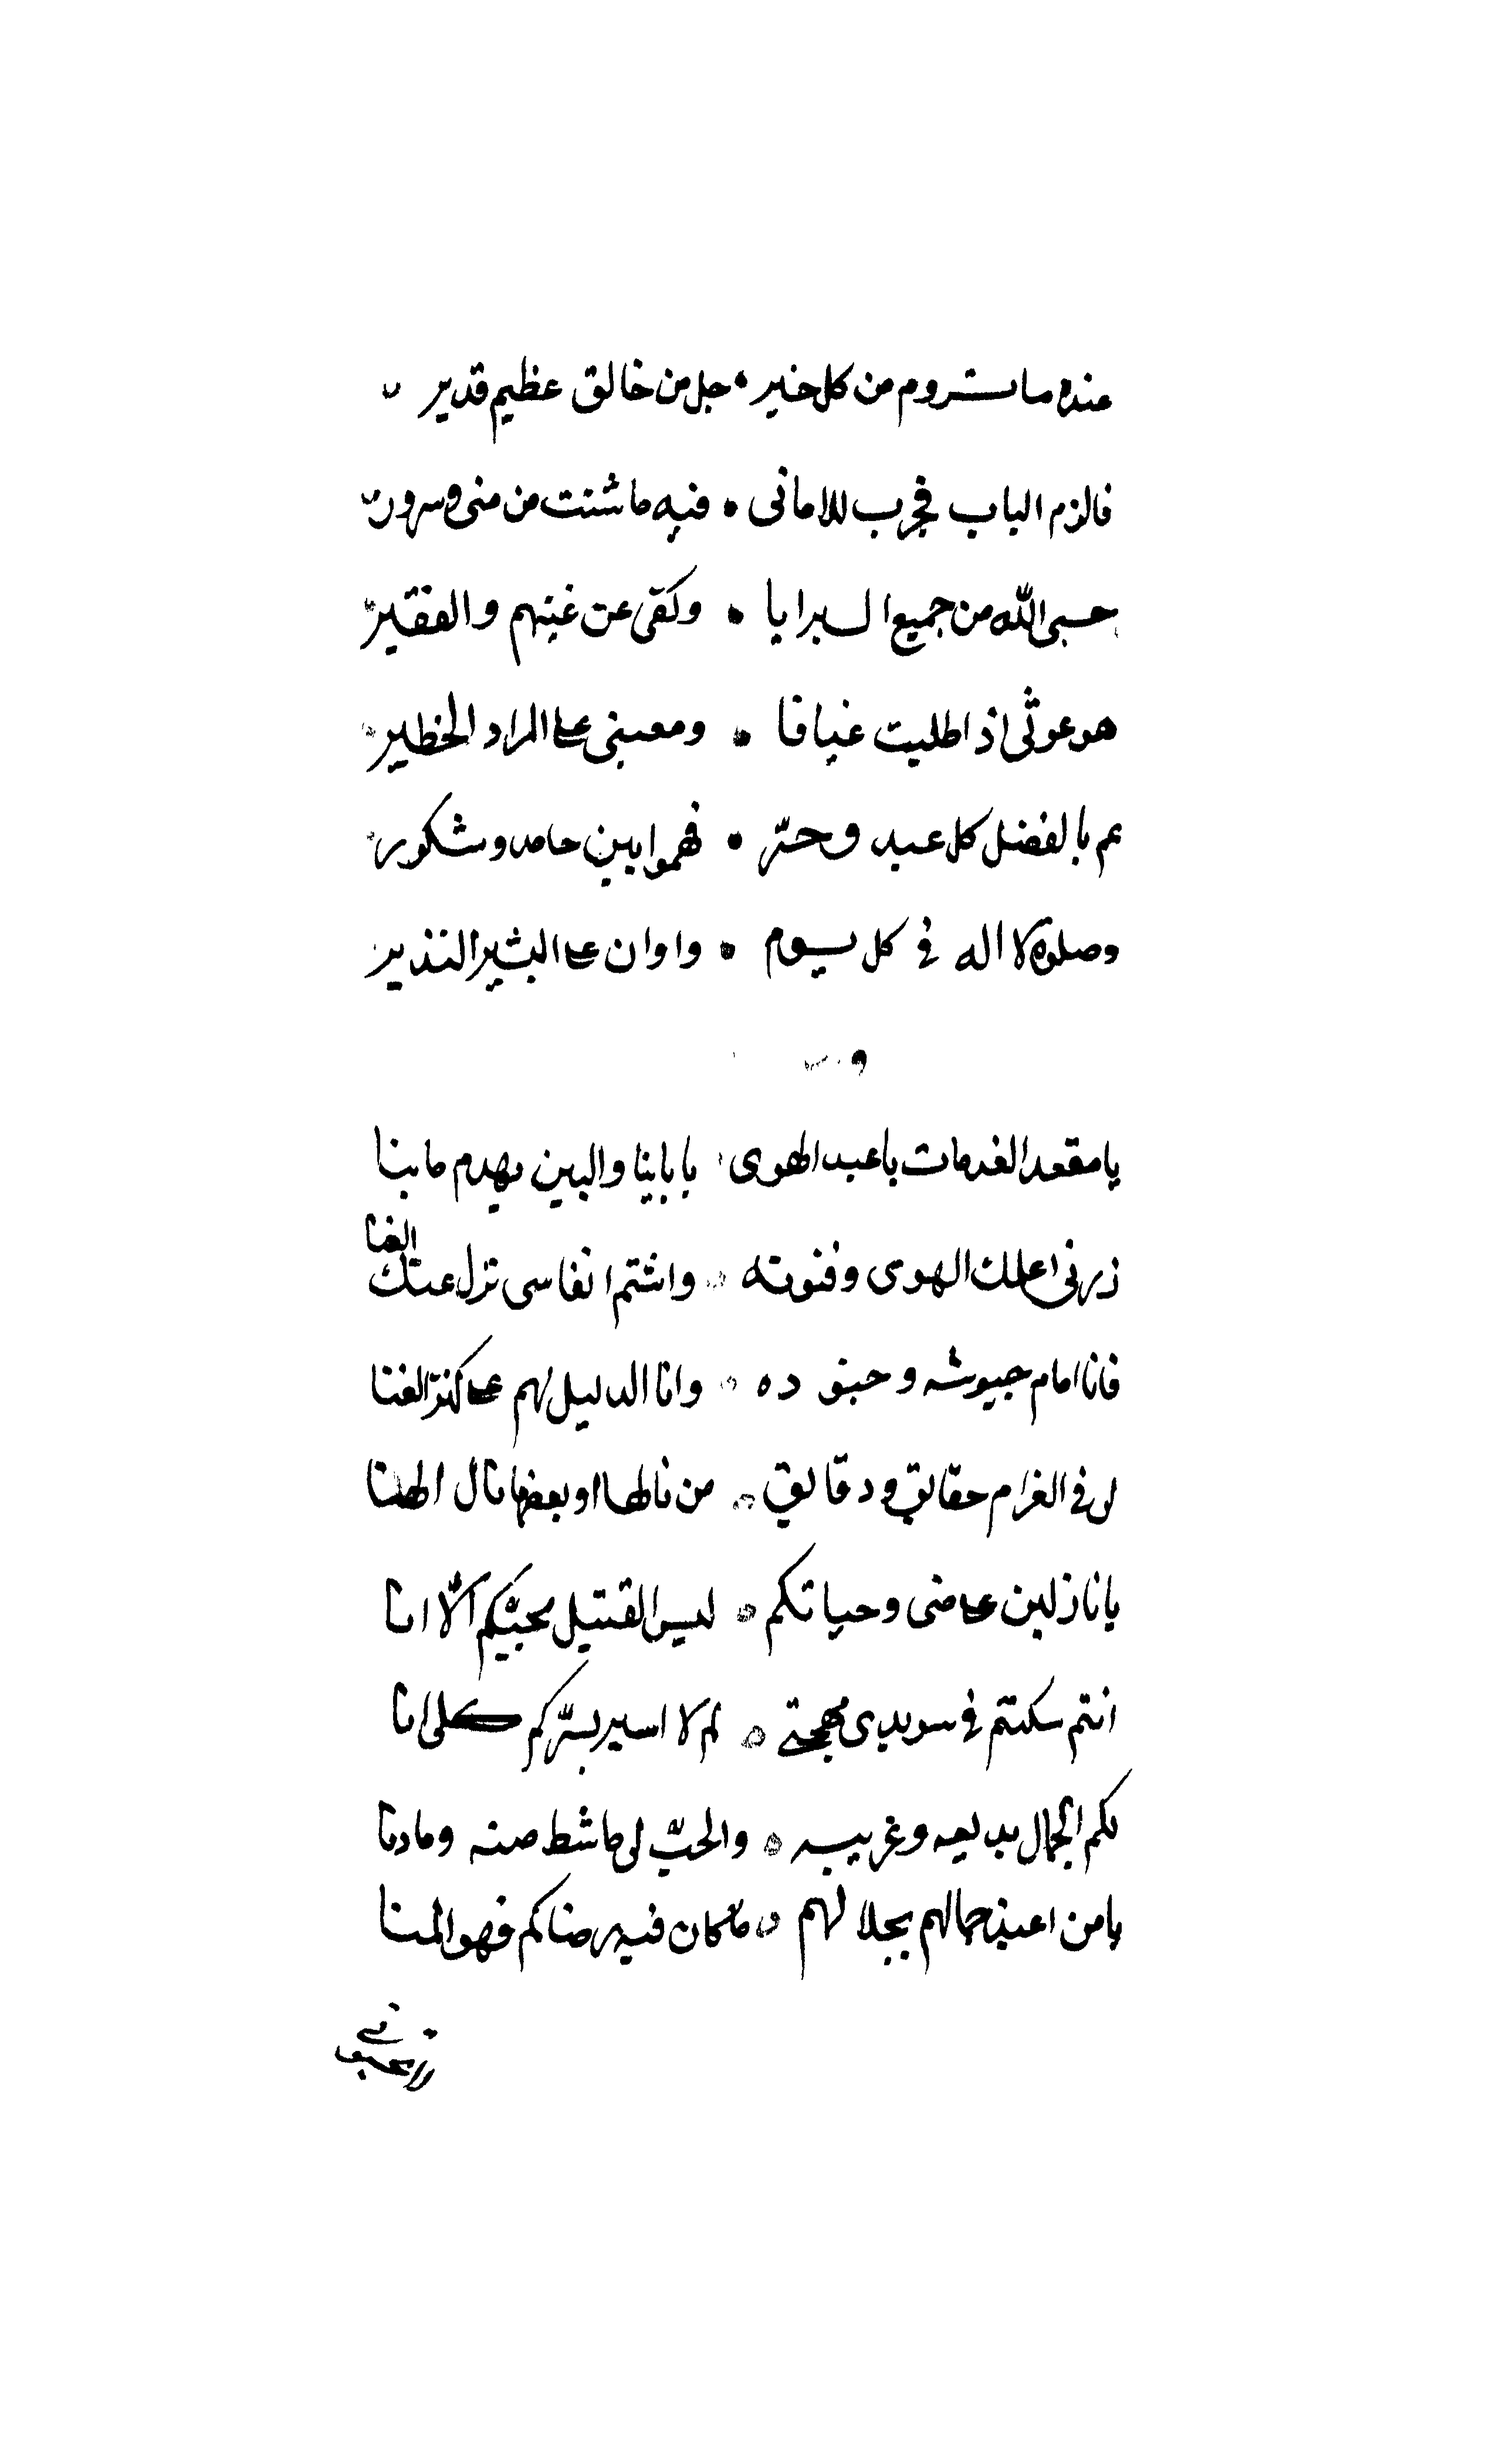 عنده ما تروم من كل خير • جل من خالق عظيم قدير
فالزم الباب فجرب للاماني • فيه ما شئت من منى وسرور
حسبي الله من جميع البرايا • وكفى عن غنيهم والفقير
هو غوثي اذا طلبت غياثا • ومعيني على المراد الخطير
عم بالفضل كل عبد وحرّ • فهموا بين حامد وشكور
وصلوة الاله في كل يوم • واوان على البشير النذير
يا مقعد العدمات يا عبد الهوى يا بابينا والبين يهدم ما بنا
ذرني اعلمك الهوى وفنونه واشتم انفاسي تزل عنك العنا
فانا امام جيوشه وجنوده وانا الدليل لهم على كنز الغنا
لي في الغرام حقايق ودقايق • من نالها او بعضها نال الهنا
يا نازلين على ضى وحياتكم • ليس القتيل بحبّكم الّا انا
انتم سكنتم في سويدى مهجتي • لم لا اسير بسرّكم كلى انا
لكم الجمال بديعه وغريبه • والحبّ لي ما شط منه وما دنا
يا من اعيذ جمالهم بجلالهم • ما كان فيه رضاكم فهو المنا